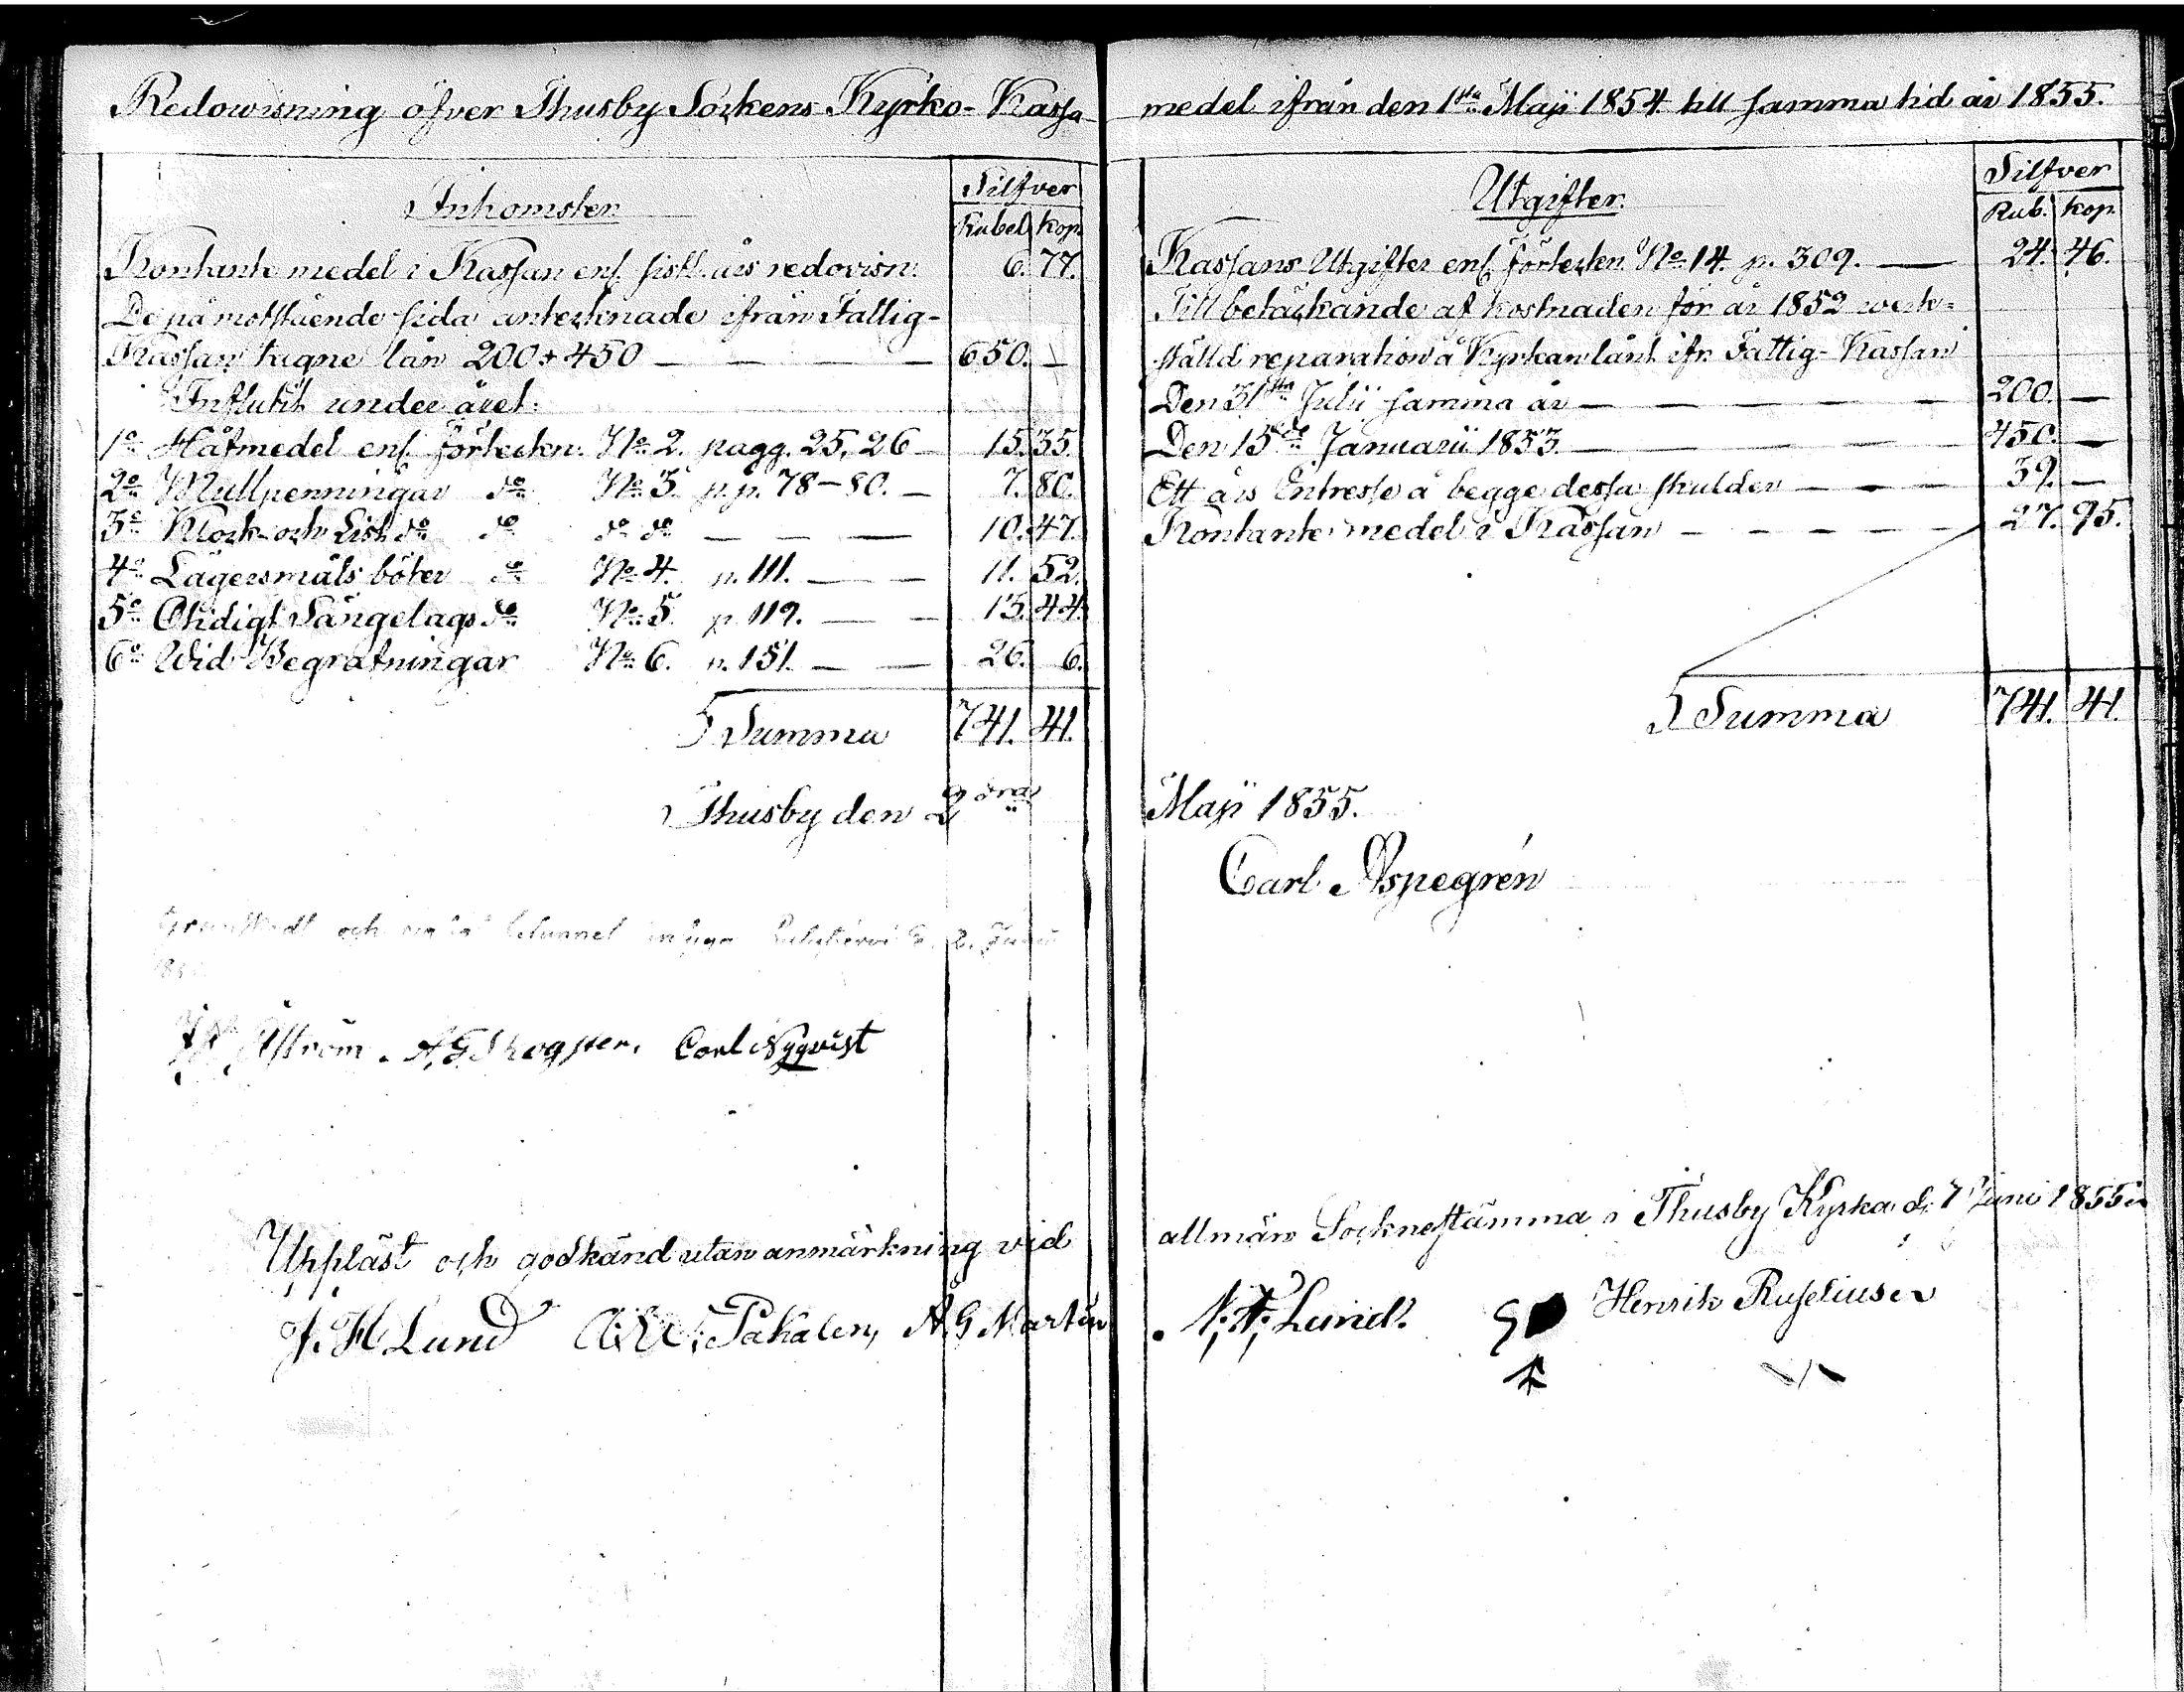 Redowisning öfver Thusby Sockens Kyrko-Kassa medel ifrån den 1sta Maji 1854 till samma tid år 1855.
Inkomster
Silfver
Rubel kop.
Kontante medel i Kassan enl. sist. års redovisn. 6. 77.
De på motstående sida antecknade ifrån Fattig-
Kassan tagne lån 200 + 450 — — — — 650. —
Influtit under året:
1o Håfmedel enl. förteckn. No 2. pagg. 25, 26 — 15. 35.
2o Mullpenningar do No 3. p.p. 78–80. — 7. 80.
3o Klock- och Lik do do do do — — — 10. 47.
4o Lägersmåls böter do No 4. p. 111. — — 11. 52.
5o Otidigt Sängelags do No 5. p. 119. — — 13. 44.
6o Wid Begrafningar No 6. p. 151. — — 26. 6.
Summa 741. 41.
Thusby den 2dra
och
Åström. Carl Nyqvist
Uppläst och godkänd utan anmärkning vid
J. H Lund Pakalen, A. G Martin
Utgifter
Silfver
Rub. kop.
Kassans Utgifter enl. förteckn. No 14. p. 309. — 24. 46.
Till betäckande af kostnaden för år 1852 werk=
ställd reparation å Kyrkan lånt ifr. Fattig-Kassan
Den 31sta Julii samma år — — — — — 200. —
Den 15de Januarii 1853. — — — — — 450. —
Ett års Intresse å begge dessa skulder — — — 39. —
Kontante medel i Kassan — — — — 27. 95.
Summa 741. 41.
Maji 1855.
Carl Aspegrén
allmän Socknestämma i Thusby Kyrka d. 7 Juni 1855
Lund. Henrik